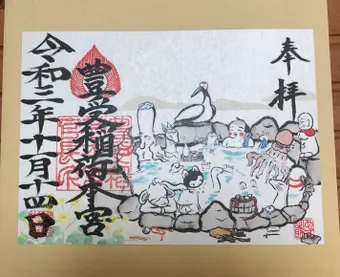 奉拝
豊受稲荷本宮
令和二年十一月十四